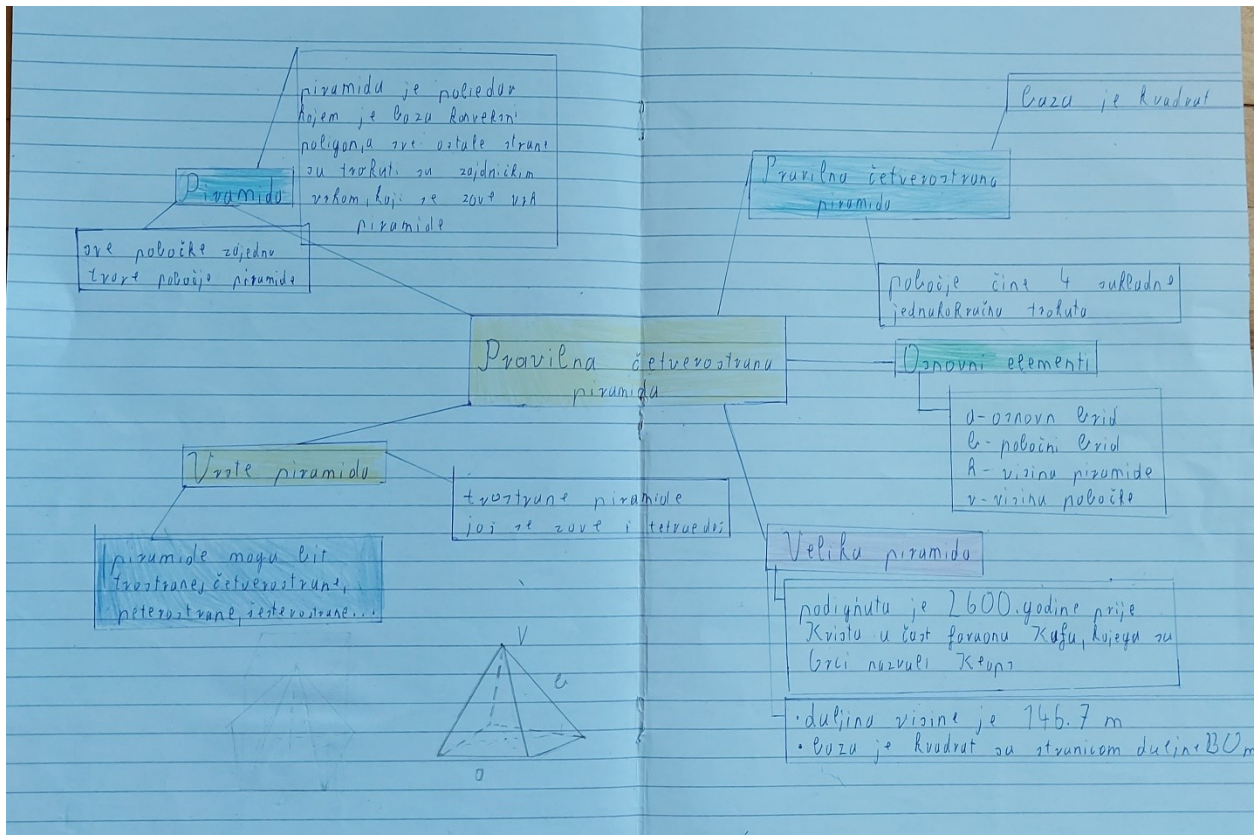 piramida je poliedar
kojem je baza konveksni
poligon, a sve ostale strane
su trokuti sa zajdničkim
vrhom, koji se zove vrh
piramide
Piramida
sve pobočke zajedno
tvore pobočje piramide
baza je kvadrat
Pravilna četverostrana
piramida
pobočje čine 4 sukladna
jednakokračna trokuta
Pravilna četverostrana
piramida
Osnovni elementi
a-osnovn brid
b-pobočni brid
h-visina piramide
v-visina pobočke
Vrste piramida
trostrane piramide
joj se zove i tetraedri
piramide mogu bit
trostrane, četverostrane,
peterostrane, šesterostrane...
Velika piramida
podignuta je 2600. godine prije
Krista u čast faraona Kufu, kojega su
Grci nazvali Keops
• duljina visine je 146.7 m
• baza je kvadrat sa stranicom duljine 230 m
V
b
a